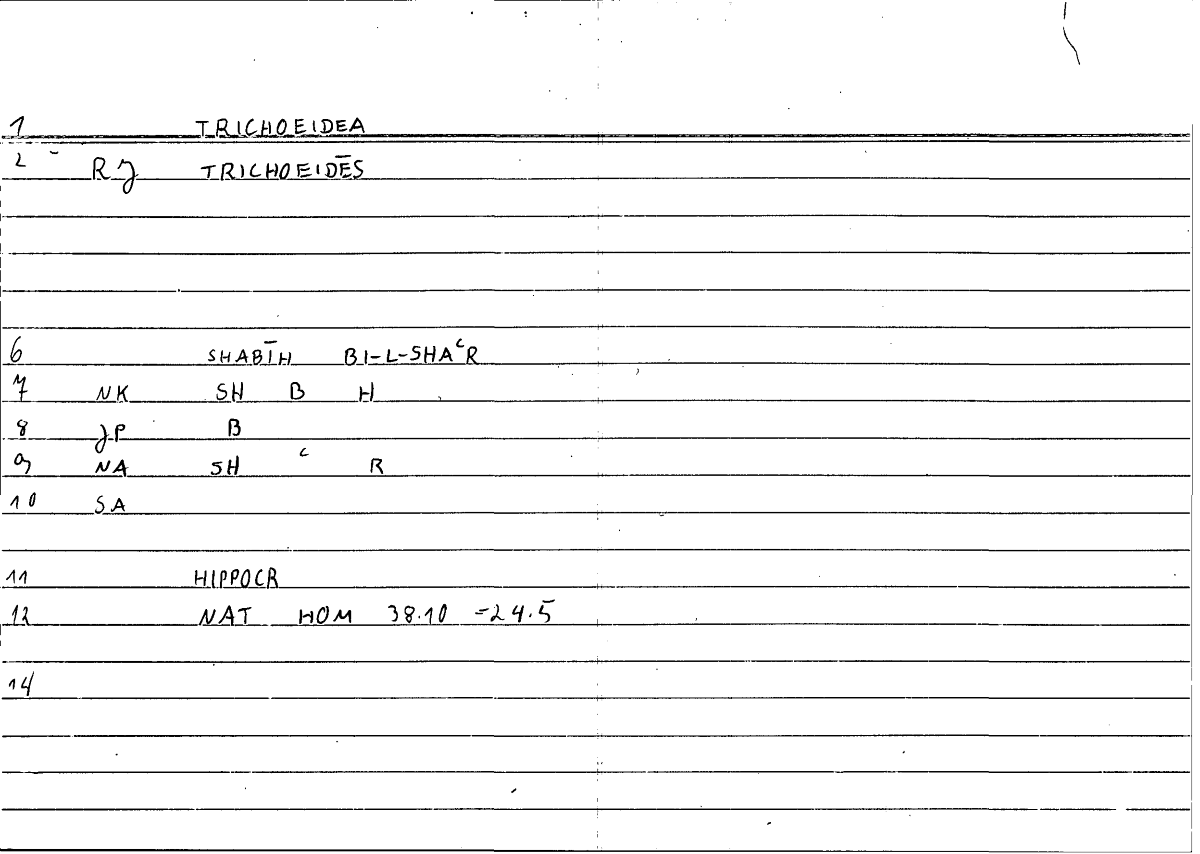 1 TRICHOEIDEA
2 RJ TRICHOEIDĒS
6 SHABĪH BI-L-SHAᶜR
7 NK SH B H
8 JP B
9 NA SH ᶜ R
10 SA
11 HIPPOCR
12 NAT HOM 38.10 =24.5
14